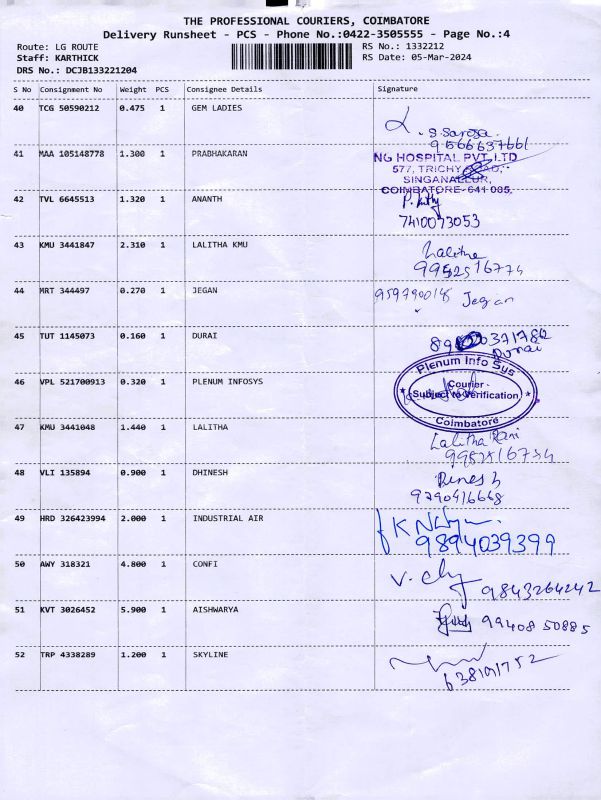 THE PROFESSIONAL COURIERS, COIMBATORE
Delivery Runsheet - PCS - Phone No.:0422-3505555 - Page No.:4
Route: LG ROUTE RS No.: 1332212
Staff: KARTHICK RS Date: 05-Mar-2024
DRS No.: DCJB133221204
S No Consignment No Weight PCS Consignee Details Signature
40 TCG 50590212 0.475 1 GEM LADIES
S. Saroja
9566637661
41 MAA 105148778 1.300 1 PRABHAKARAN
NG HOSPITAL PVT. LTD
577, TRICHY ROAD,
SINGANALLUR,
COIMBATORE- 641 005.
42 TVL 6645513 1.320 1 ANANTH
7410073053
43 KMU 3441847 2.310 1 LALITHA KMU
Lalitha
9952516774
44 MRT 344497 0.270 1 JEGAN
Jegan
45 TUT 1145073 0.160 1 DURAI
Durai
46 VPL 521700913 0.320 1 PLENUM INFOSYS
Plenum Info Sys
Courier
Subject to Verification
Coimbatore
47 KMU 3441048 1.440 1 LALITHA
Lalitha Rani
48 VLI 135894 0.900 1 DHINESH
Dinesh
9790416668
49 HRD 326423994 2.000 1 INDUSTRIAL AIR
9894039399
50 AWY 318321 4.800 1 CONFI
9843264242
51 KVT 3026452 5.900 1 AISHWARYA
99408 50885
52 TRP 4338289 1.200 1 SKYLINE